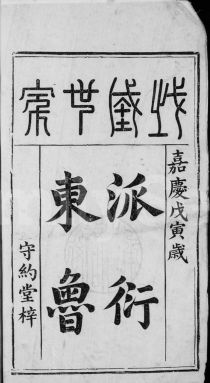 武城世家
嘉慶戊寅歲
派衍
東魯
守約堂梓